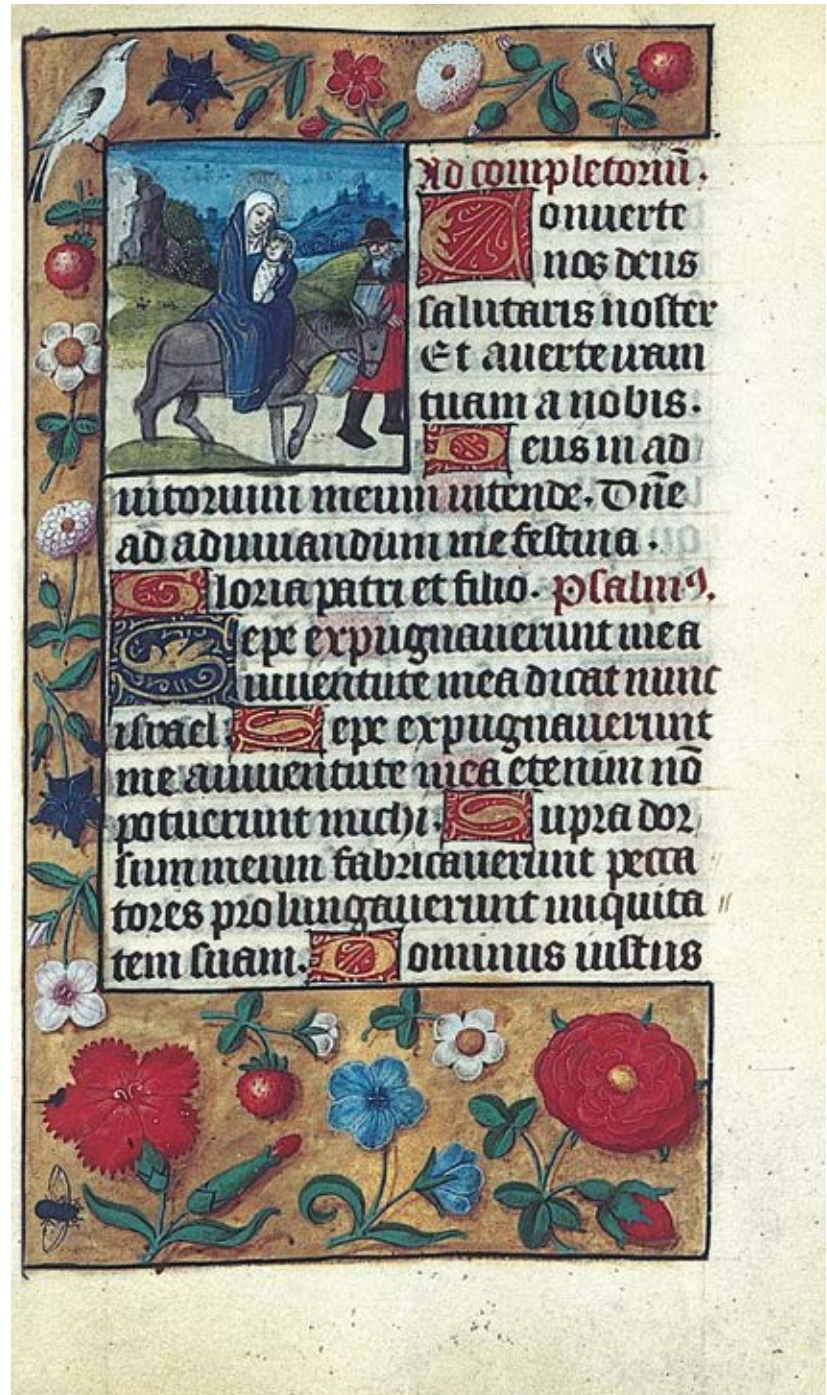 Ad completoriũ.
Conuerte
nos deus
salutaris noster
Et auerte iram
tuam a nobis.
Deus in ad
iutorium meum intende. Dñe
ad adiuuandum me festina.
Gloria patri et filio. Psalmꝰ.
Sepe expugnauerunt me a
iuuentute mea dicat nunc
israel. Sepe expugnauerunt
me a iuuentute mea etenim nõ
potuerunt michi. Supra dor
sum meum fabricauerunt pecca
tores prolungauerunt iniquita
tem suam. Dominus iustus